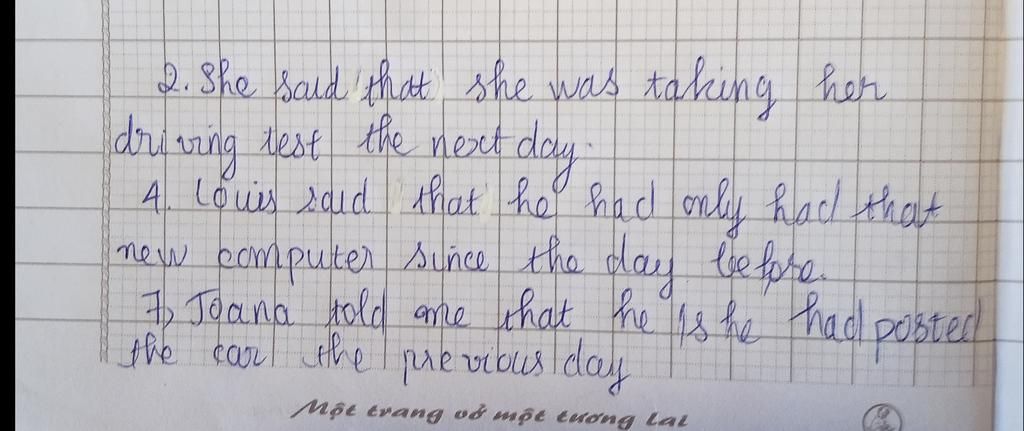 2. She said that she was taking her
driving test the next day.
4. Louis said that he had only had that
new computer since the day before.
7, Joana told me that he /she had posted
the car the previous day
Một trang vở một tương lai